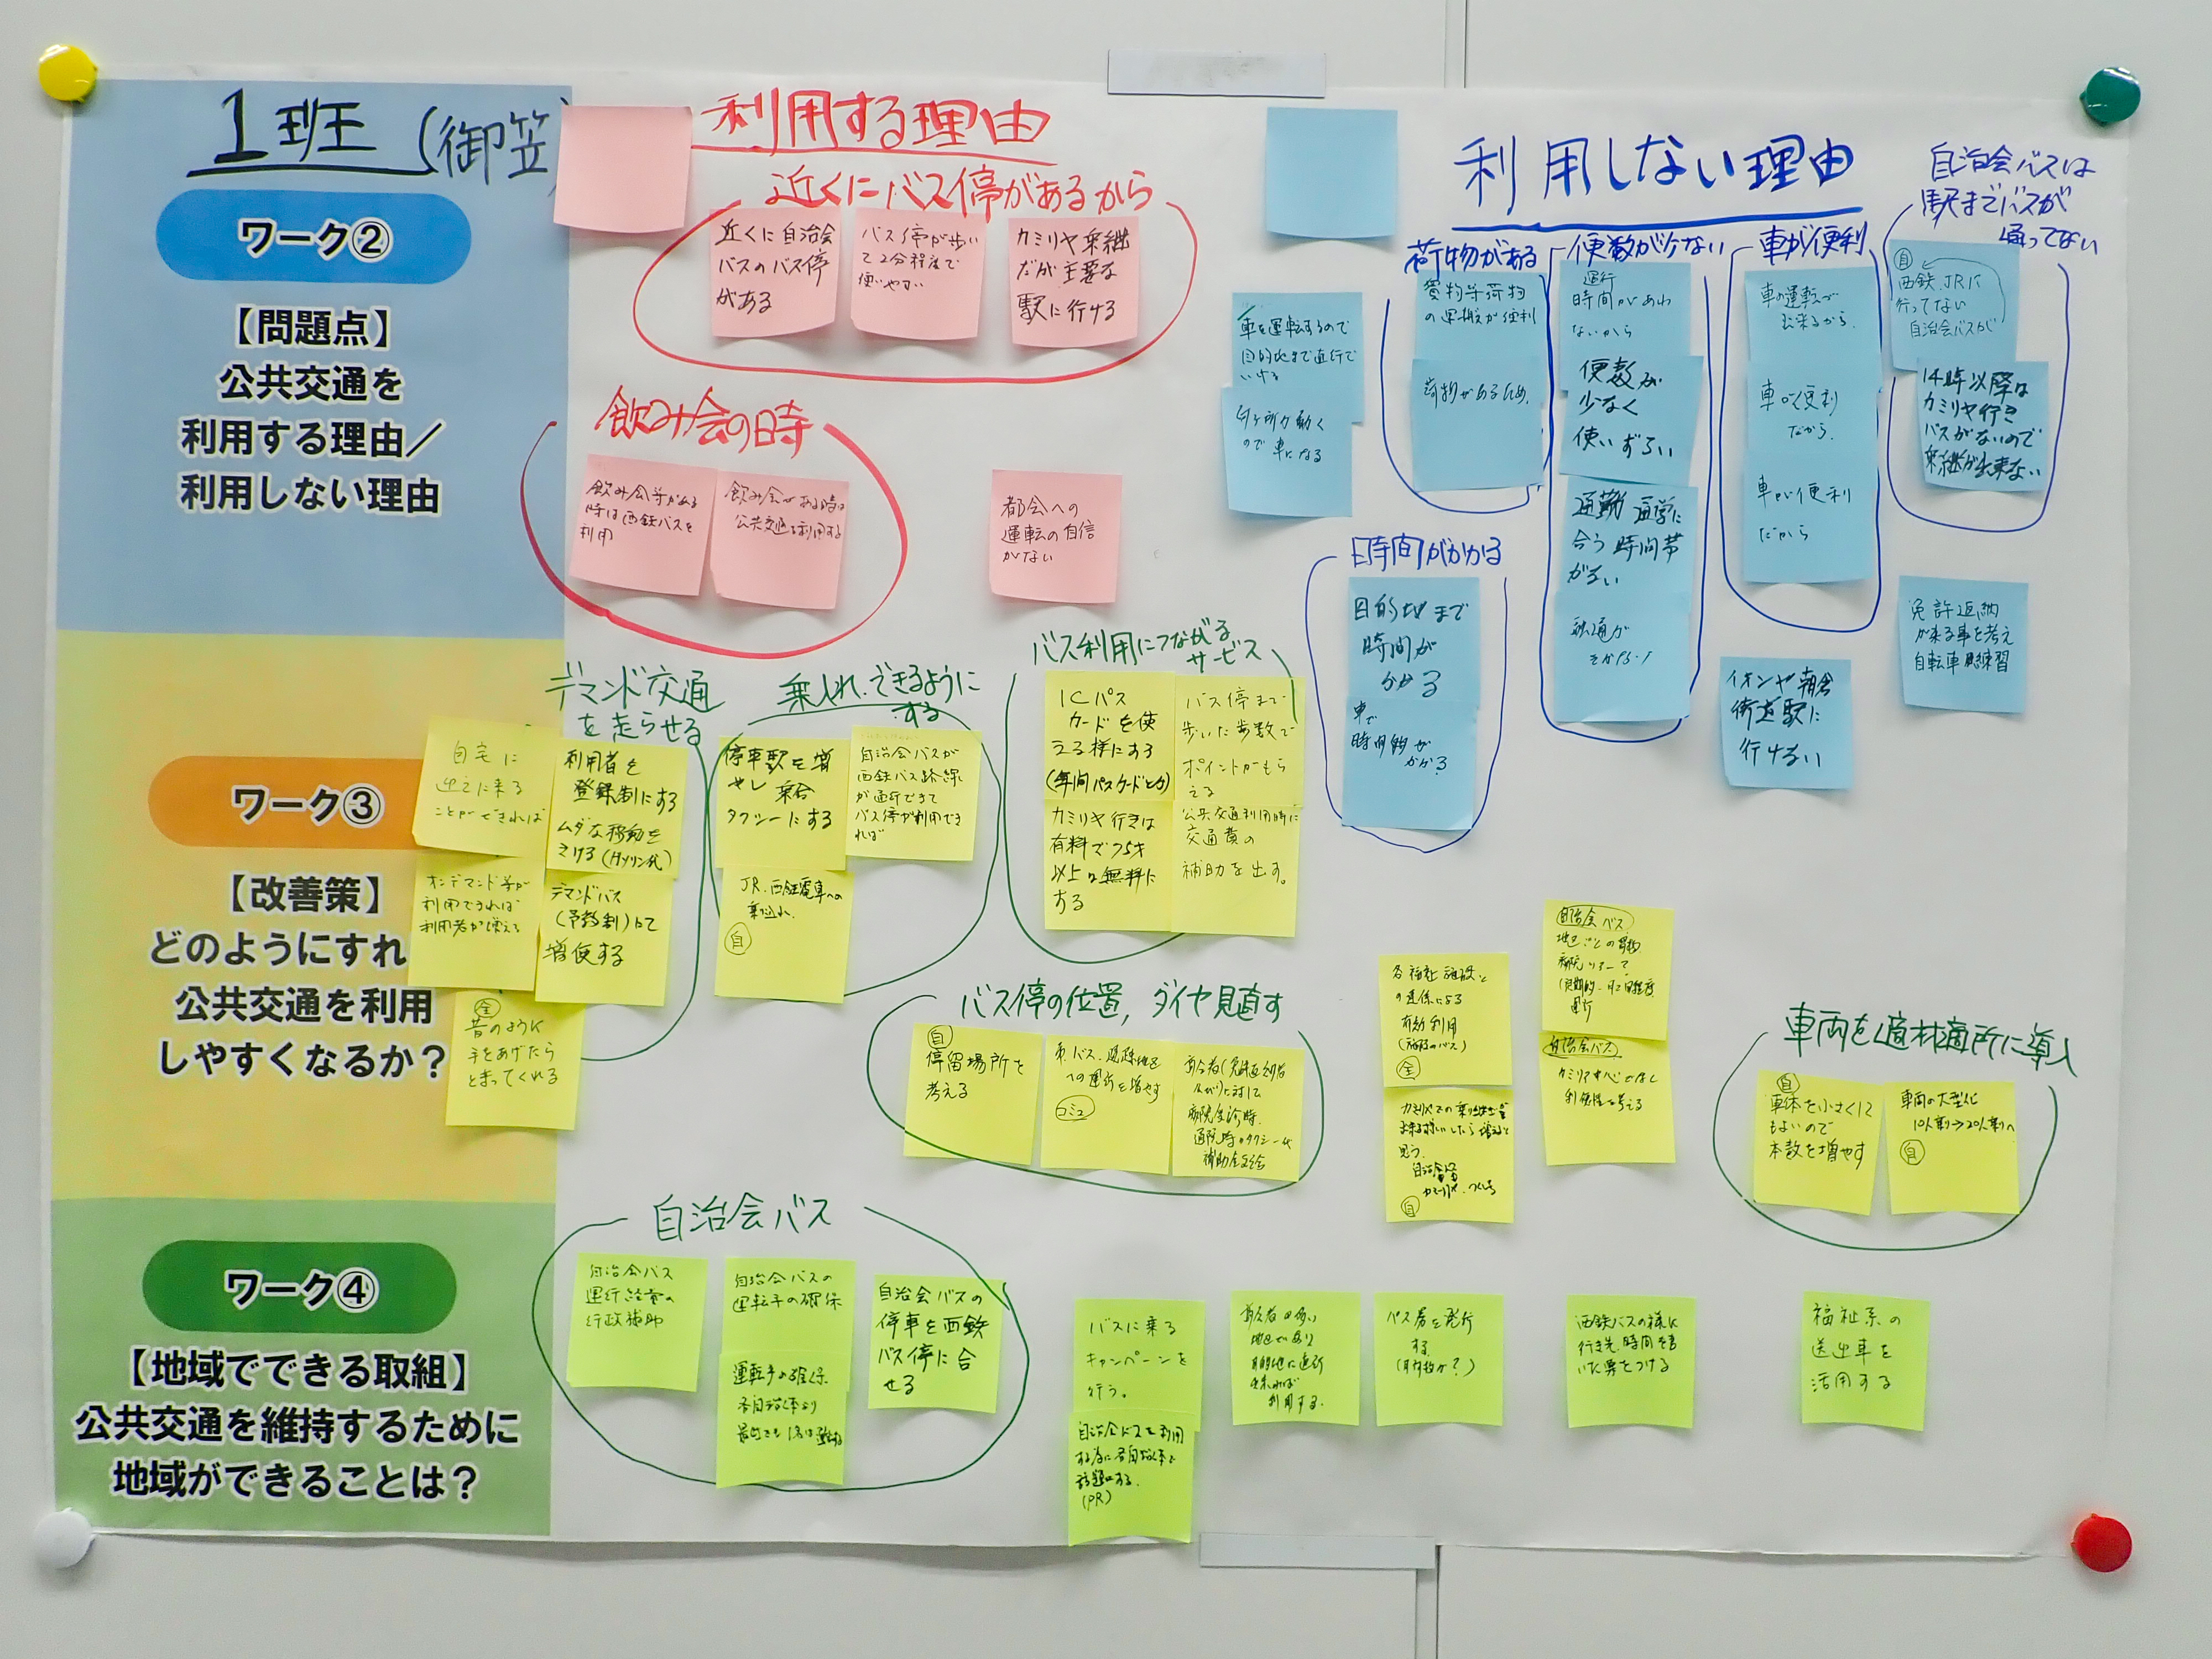 1班(御笠)
ワーク②
【問題点】
公共交通を
利用する理由／
利用しない理由
利用する理由
近くにバス停があるから
近くに自治会
バスのバス停
がある
バス停が歩い
て2分程度で
使いやすい
カミリヤ乗継
だが主要な
駅に行ける
飲み会の時
飲み会等がある
時は西鉄バスを
利用
飲み会がある時は
公共交通を利用する
都会への
運転の自信
がない
利用しない理由
車を運転するので
目的地まで直行で
いける
ので車になる
荷物がある
買物等荷物
の運搬が便利
荷物があるため、
便数が少ない
運行
時間があわ
ないから
便数が
少なく
使いずらい
通勤通学に
合う時間帯
がない
融通が
きかない
車が便利
車の運転が
出来るから。
車が便利
だから。
車が便利
だから
自治会バスは
駅までバスが
通ってない
自
西鉄、JRに
行ってない
自治会バスが
14時以降は
カミリヤ行き
バスがないので
乗継が出来ない
時間がかかる
目的地まで
時間が
かかる
車で
時間的が
かかる
イオンや朝倉
街道駅に
行けない
免許返納
が来る事を考え
自転車練習
ワーク③
【改善策】
どのようにすれ
公共交通を利用
しやすくなるか？
デマンド交通
を走らせる
自宅に
迎えに来る
ことができれば
利用者を
登録制にする
ムダな移動を
さける(ガソリン代)
オンデマンド等が
利用できれば
利用者が増える
デマンドバス
(予約制)にて
増便する
全
昔のように
手をあげたら
とまってくれる
乗入れできるように
する
停車駅を増
やし乗合
タクシーにする
自治会バスが
西鉄バス路線
が通行できて
バス停が利用でき
れば
JR、西鉄電車への
乗込れ、
自
バス利用につながる
サービス
ICパス
カードを使
える様にする
(年間パスカードとか)
バス停まで
歩いた歩数で
ポイントがもら
える
カミリヤ行きは
有料で75才
以上は無料に
する
公共交通利用時に
交通費の
補助を出す。
バス停の位置,ダイヤ見直す
自
停留場所を
考える
への運行を増やす
コミュ
病院受診時、
通院時のタクシー代
補助金支給
各福祉施設と
の連係による
有効利用
(施設のバス)
全
自
自治会バス
地区ごとの買物
病院ツアーで
運行
自治会バス
カミリヤ中心でなく
利便性を考える
車両を適材適所に導入
自
車体を小さくして
もよいので
本数を増やす
車両の大型化
10人乗り→20人乗りへ
自
ワーク④
【地域でできる取組】
公共交通を維持するために
地域ができることは？
自治会バス
自治会バス
運行経費の
行政補助
自治会バスの
運転手の確保
運転手の確保、
自治会バスの
停車を西鉄
バス停に合
せる
バスに乗る
キャンペーンを
行う。
自治会バスを利用
する為に各自治会で
話題にする。
(PR)
高令者の多い
地区であり
目的地に直行
出来れば
利用する。
バス券を発行
する。
西鉄バスの様に
行き先、時間を書
いた票をつける
福祉系の
送出車を
活用する